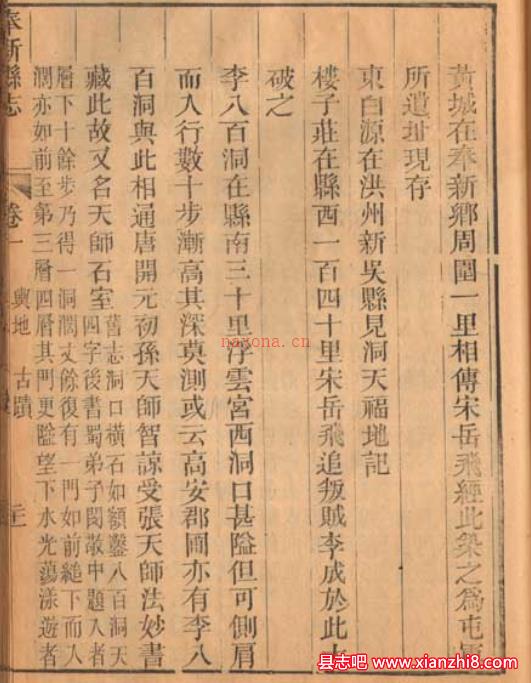 黃城在奉新鄉周圍一里相傳宋岳飛經此築之爲屯軍
所遺址現存
東白源在洪州新吳縣見洞天福地記
樓子莊在縣西一百四十里宋岳飛追叛賊李成於此大
破之
李八百洞在縣南三十里浮雲宮西洞口甚隘但可側肩
而入行數十步漸高其深莫測或云高安郡圃亦有李八
百洞與此相通唐開元初孫天師智諒受張天師法妙書
藏此故又名天師石室
舊志洞口橫石如額鑿八百洞天
四字後書蜀弟子閔敬中題入者
層下十餘步乃得一洞濶丈餘復有一門如前縋下而入
濶亦如前至第三層四層其門更隘望下水光蕩漾遊者
奉新縣志
卷一
輿地
古蹟
nayona.cn
县志吧®
www.xianzhi8.com